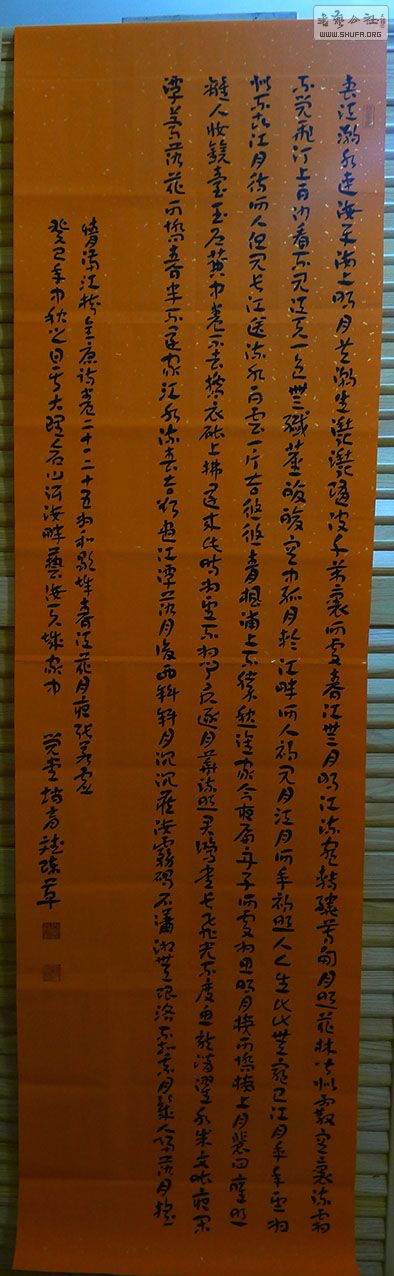 春江潮水連海平海上明月共潮生灩灩隨波千萬里何處春江無月明江流宛轉繞芳甸月照花林皆似霰空裏流霜
不覺飛汀上白沙看不見江天一色無纖塵皎皎空中孤月輪江畔何人初見月江月何年初照人人生代代無窮已江月年年望相
似不知江月待何人但見長江送流水白雲一片去悠悠青楓浦上不勝愁誰家今夜扁舟子何處相思明月樓可憐樓上月裴回應照
離人妝鏡臺玉戶簾中卷不去擣衣砧上拂還來此時相望不相聞願逐月華流照君鴻雁長飛光不度魚龍潛躍水成文昨夜閑
潭夢落花可憐春半不還家江水流春去欲盡江潭落月復西斜斜月沉沉藏海霧碣石瀟湘無限路不知乘月幾人歸落月搖
情滿江樹全唐詩卷二十二十五和歌春江花月夜張若虛
癸巳年中秋之日於大理海畔藝海天城家中
書藝公社
WWW.SHUFA.ORG